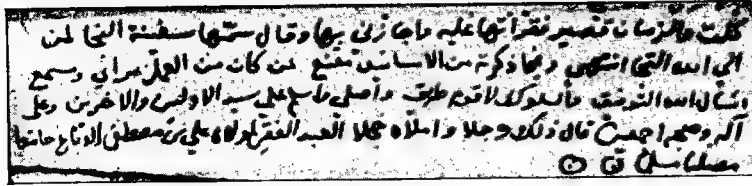 قلت والزمان قصير فقرأتها عليه واجازني بها وقال سمها سفينة النجا لمن
الى الله التجا انتهى وبما ذكرته من الاسانيد مقنع لمن كان من العمل بمرأى ومسمع
اسأل الله التوفيق والسلوك لاقوم طريق واصلي واسلم على سيد الاولين والاخرين وعلى
آله وصحبه اجمعين قال ذلك وجلا واملاه خجلا العبد الفقير علي بن مصطفى الدباغ حامدا
مصليا مسلما